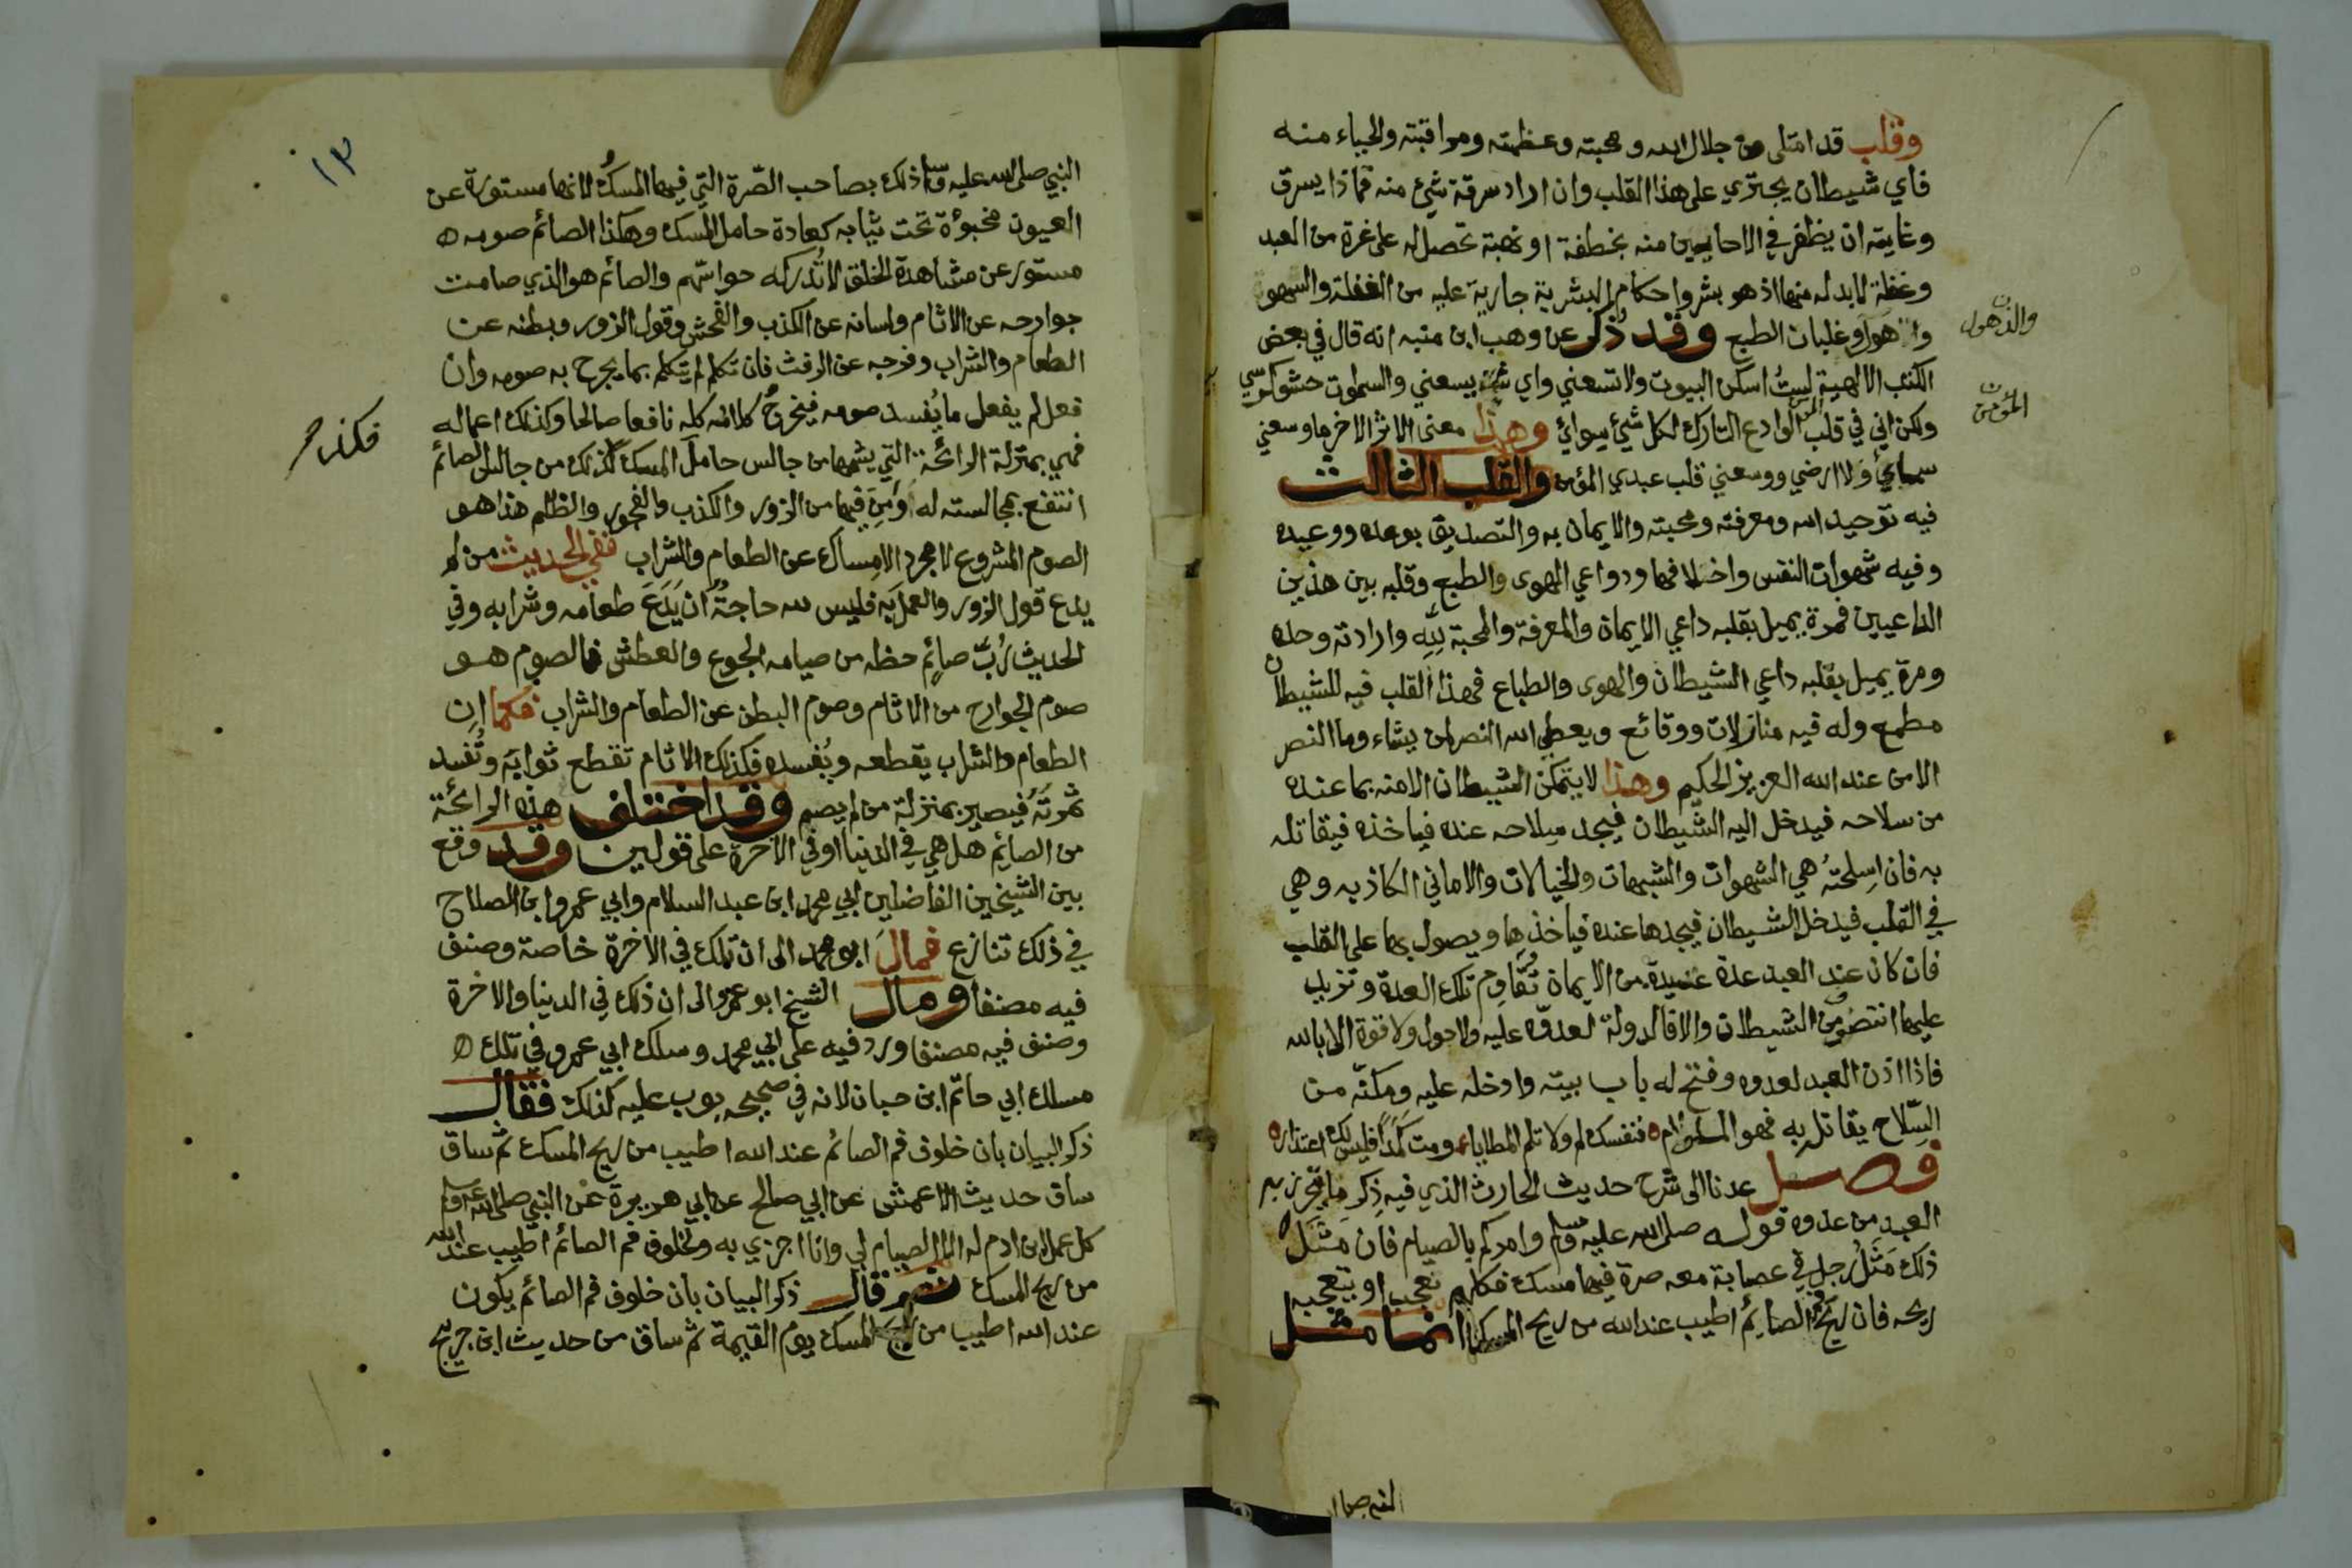 وقلب قد امتلى من جلال الله ومحبته وعظمته ومراقبته والحياء منه
فاي شيطان يجتري على هذا القلب وان اراد سرقة شيء منه فماذا يسرق
وغايته ان يظفر في الاحايين منه بخطفة او نهبة تحصل له على غرة من العبد
وغفلة لابد له منها اذ هو بشر واحكام البشرية جارية عليه من الغفلة والسهو
والذهول
وغلبات الطبع وقد ذكر عن وهب ابن منبه انه قال في بعض
الكتب الالهية لستُ اسكن البيوت ولا تسعني واي شيء يسعني والسموت حشو كرسي
المؤمن
ولكن اني في قلب الوادع التارك لكل شيء سوائي وهذا معنى الاثر الاخر ما وسعني
سمائي ولا ارضي ووسعني قلب عبدي المؤمن والقلب الثالث
فيه توحيد الله ومعرفته ومحبته والايمان به والتصديق بوعده ووعيده
وفيه شهوات النفس واخلاقها ودواعي الهوى والطبع وقلبه بين هذين
الداعيين فمرة يميل بقلبه داعي الايمان والمعرفة والمحبة لله وارادته وحده
ومرة يميل بقلبه داعي الشيطان والهوى والطباع فهذا القلب فيه للشيطان
مطمع وله فيه منازلات ووقائع ويعطي الله النصر لمن يشاء وما النصر
الا من عند الله العزيز الحكيم وهذا لا يتمكن الشيطان الا منه بما عنده
من سلاحه فيدخل اليه الشيطان فيجد سلاحه عنده فياخذه فيقاتله
به فان اسلحته هي الشهوات والشبهات والخيالات والاماني الكاذبه وهي
في القلب فيدخل الشيطان فيجدها عنده فياخذها ويصول بها على القلب
فان كان عند العبد عدة عتيدة من الايمان تُقاوم تلك العدة وتزيد
عليها انتصر من الشيطان والا فالدولة لعدوه عليه ولا حول ولا قوة الا بالله
فاذا اذن العبد لعدوه وفتح له باب بيته وادخله عليه ومكنّه من
السّلاح يقاتله به فهو الملوم ه فنفسك لم ولا تلم المطايا ومت كمدًا فليس لك اعتذار ه
فصل عدنا الى شرح حديث الحارث الذي فيه ذِكر ما يحرز به
العبد من عدوه قوله صلى الله عليه وسلم وامركم بالصيام فان مَثَل
ذلك مَثَلُ رجل في عصابة معه صرة فيها مسك فكلهم تعجب او يتعجبه
ريحه فان ريحُ الصائم اطيب عند الله من ريح المسك انما مثل
النبي صلى ا
١٣
النبي صلى الله عليه وسلم ذلك بصاحب الصّرة التي فيها المسكُ لانها مستورة عن
العيون مخبوءة تحت ثيابه كعادة حامل المسك وهكذا الصائم صومه ه
مستور عن مشاهدة الخلق لا تُدركه حواسّهم والصائم هو الذي صامت
جوارحه عن الاثام ولسانه عن الكذب والفحش وقول الزور وبطنه عن
الطعام والشراب وفرجه عن الرفث فان تكلم لم يتكلم بما يجرح به صومه وان
فعل لم يفعل ما يُفسد صومه فيخرجُ كلامه كله نافعا صالحا وكذلك اعماله
فهي بمنزلة الرائحة التي يشمها من جالس حامل المسك كذلك من جالس الصائم
انتفع بمجالسته له وأمِنَ فيها من الزور والكذب والفجور والظلم هذا هو
الصوم المشروع لا مجرد الامساك عن الطعام والشراب ففي الحديث من لم
يدع قول الزور والعمل به فليس لله حاجةٌ ان يَدَعَ طعامه وشرابه وفي
الحديث رُبّ صائمٍ حظه من صيامه الجوع والعطش فالصوم هو
صوم الجوارح من الاثام وصوم البطن عن الطعام والشراب فكما ان
الطعام والشراب يقطعه ويُفسده فكذلك الاثام تقطع ثوابه وتُفسد
ثمرته فيصير بمنزلة من لم يصم وقد اختلف هذه الرائحة
من الصائم هل هي في الدنيا او في الاخرة على قولين وقد وقع
بين الشيخين الفاضلين ابي محمد ابن عبد السلام وابي عمرو ابن الصلاح
في ذلك تنازع فمال ابو محمد الى ان تلك في الاخرة خاصة وصنف
فيه مصنفا ومال الشيخ ابو عمرو الى ان ذلك في الدنيا والاخرة
وصنف فيه مصنفا ورد فيه على ابي محمد وسلك ابي عمرو في تلك ه
مسلك ابي حاتم ابن حبان لانه في صحيحه بوب عليه كذلك فقال
ذكر البيان بان خلوف فم الصائم عند الله اطيب من ريح المسك ثم ساق
ساق حديث الاعمش عن ابي صالح عن ابي هريرة عن النبي صلى الله عليه وسلم
كل عمل ابن ادم له الا الصيام لي وانا اجزي به ولخلوف فم الصائم اطيب عند الله
من ريح المسك ثم قال ذكر البيان بان خلوف فم الصائم يكون
عند الله اطيب من ريح المسك يوم القيمة ثم ساق من حديث ابن جريج